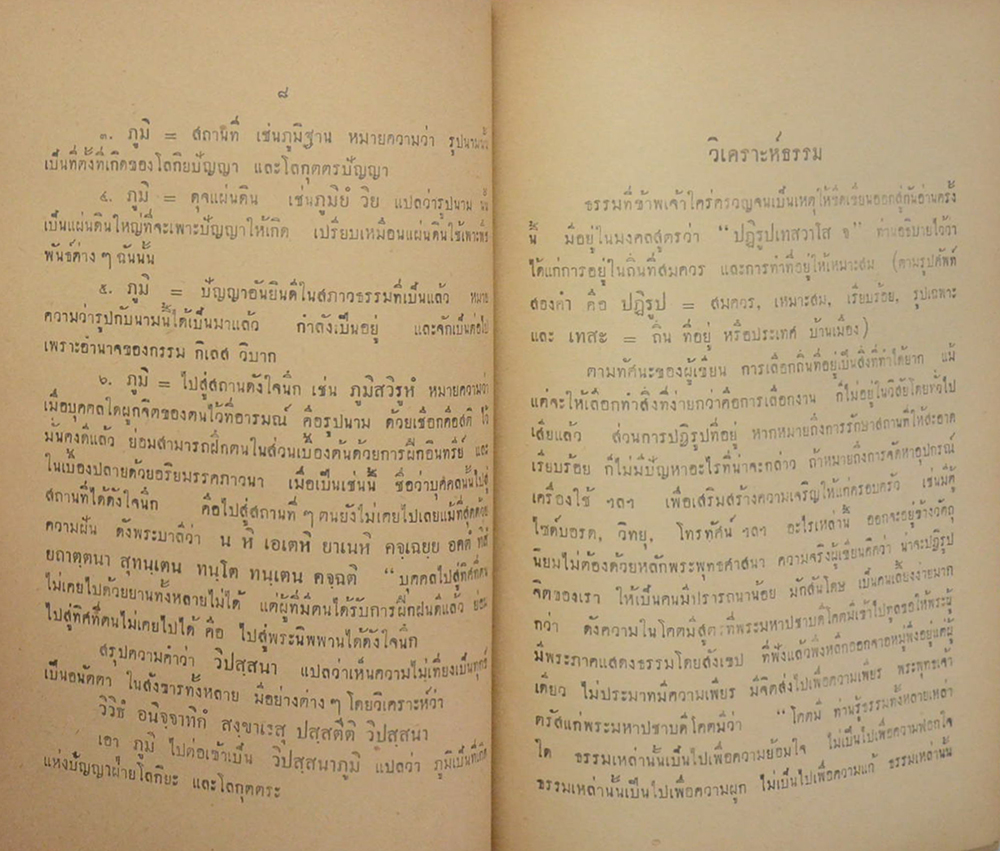 ๘
๓. ภูมิ = สถานที่ เช่นภูมิฐาน หมายความว่า รูปนามนี้
เป็นที่ตั้งที่เกิดของโลกิยปัญญา และโลกุตตรปัญญา
๔. ภูมิ = ดุจแผ่นดิน เช่นภูมิยํ วิย แปลว่ารูปนาม
เป็นแผ่นดินใหญ่ที่จะเพาะปัญญาให้เกิด เปรียบเหมือนแผ่นดินใช้เพาะพืช
พันธ์ต่าง ๆ ฉันนั้น
๕. ภูมิ = ปัญญาอันยินดีในสภาวธรรมที่เป็นแล้ว หมาย
ความว่ารูปกับนามนี้ได้เป็นมาแล้ว กำลังเป็นอยู่ และจักเป็นต่อไป
เพราะอำนาจของกรรม กิเลส วิบาก
๖. ภูมิ = ไปสู่สถานดังใจนึก เช่น ภูมิสวิรูหํ หมายความว่า
เมื่อบุคคลใดผูกจิตของตนไว้ที่อารมณ์ คือรูปนาม ด้วยเชือกคือสติ ไว้
มั่นคงดีแล้ว ย่อมสามารถฝึกตนในส่วนเบื้องต้นด้วยการฝึกอินทรีย์ และ
ในเบื้องปลายด้วยอริยมรรคภาวนา เมื่อเป็นเช่นนี้ ชื่อว่าบุคคลนั้นไปสู่
สถานที่ได้ดังใจนึก คือไปสู่สถานที่ ๆ ตนยังไม่เคยไปเลยแม้ที่สุดด้วย
ความฝัน ดังพระบาลีว่า น หิ เอเตหิ ยาเนหิ คจฺเฉยฺย อคตํ ทิสํ
ยถาตฺตนา สุทนฺเตน ทนฺโต ทนฺเตน คจฺฉติ “บุคคลไปสู่ทิศที่ตน
ไม่เคยไปด้วยยานทั้งหลายไม่ได้ แต่ผู้ที่มีตนได้รับการฝึกฝนดีแล้ว ย่อม
ไปสู่ทิศที่ตนไม่เคยไปได้ คือ ไปสู่พระนิพพานได้ดังใจนึก
สรุปความคำว่า วิปสฺสนา แปลว่าเห็นความไม่เที่ยงเป็นทุกข์
เป็นอนัตตา ในสังขารทั้งหลาย มีอย่างต่าง ๆ โดยวิเคราะห์ว่า
วิวิธํ อนิจฺจาทิกํ สงฺขาเรสุ ปสฺสตีติ วิปสฺสนา
เอา ภูมิ ไปต่อเข้าเป็น วิปสฺสนาภูมิ แปลว่า ภูมิเป็นที่เกิด
แห่งปัญญาฝ่ายโลกิยะ และโลกุตตระ
วิเคราะห์ธรรม
ธรรมที่ข้าพเจ้าใคร่ครวญจนเป็นเหตุให้ขีดเขียนออกสู่กันอ่านครั้ง
นี้ มีอยู่ในมงคลสูตรว่า “ปฏิรูปเทสวาโส จ” ท่านอธิบายไว้ว่า
ได้แก่การอยู่ในถิ่นที่สมควร และการทำที่อยู่ให้เหมาะสม (ตามรูปศัพท์
สองคำ คือ ปฏิรูป = สมควร, เหมาะสม, เรียบร้อย, รูปเฉพาะ
และ เทสะ = ถิ่น ที่อยู่ หรือประเทศ บ้านเมือง)
ตามทัศนะของผู้เขียน การเลือกถิ่นที่อยู่เป็นสิ่งที่ทำได้ยาก แม้
แต่จะให้เลือกทำสิ่งที่ง่ายกว่าคือการเลือกงาน ก็ไม่อยู่ในวิสัยโดยทั่วไป
เสียแล้ว ส่วนการปฏิรูปที่อยู่ หากหมายถึงการรักษาสถานที่ให้สะอาด
เรียบร้อย ก็ไม่มีปัญหาอะไรที่น่าจะกล่าว ถ้าหมายถึงการจัดหาอุปกรณ์
เครื่องใช้ ฯลฯ เพื่อเสริมสร้างความเจริญให้แก่ครอบครัว เช่นมีตู้
ไซด์บอรด, วิทยุ, โทรทัศน์ ฯลฯ อะไรเหล่านี้ ออกจะอยู่ข้างวัตถุ
นิยมไม่ต้องด้วยหลักพระพุทธศาสนา ความจริงผู้เขียนคิดว่า น่าจะปฏิรูป
จิตของเรา ให้เป็นคนมีปรารถนาน้อย มักสันโดษ เป็นคนเลี้ยงง่ายมาก
กว่า ดังความในโคตมีสูตรที่พระมหาปชาบดีโคตมีเข้าไปทูลขอให้พระผู้
มีพระภาคแสดงธรรมโดยสังเขป ที่ฟังแล้วพึงหลีกออกจากหมู่พึงอยู่แต่ผู้
เดียว ไม่ประมาทมีความเพียร มีจิตส่งไปเพื่อความเพียร พระพุทธเจ้า
ตรัสแก่พระมหาปชาบดีโคตมีว่า “โคตมี ท่านรู้ธรรมทั้งหลายเหล่า
ใด ธรรมเหล่านั้นเป็นไปเพื่อความย้อมใจ ไม่เป็นไปเพื่อความฟอกใจ
ธรรมเหล่านั้นเป็นไปเพื่อความผูก ไม่เป็นไปเพื่อความแก้ ธรรมเหล่านั้น